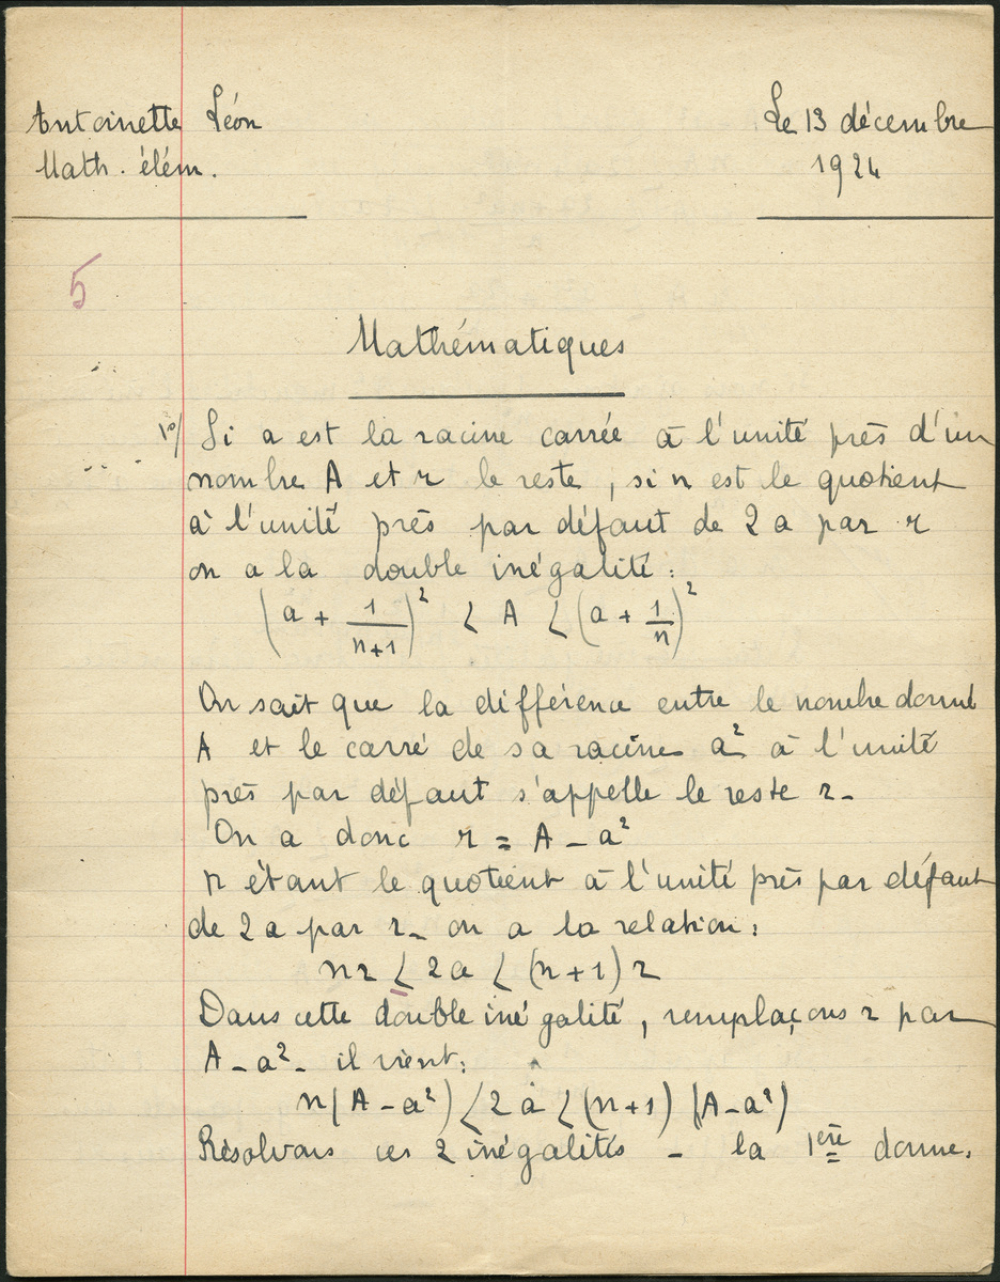 Antoinette Léon
Le 13 décembre
Math. élém.
1924
5
Mathématiques
1º/ Si a est la racine carrée à l'unité près d'un
nombre A et r le reste, si n est le quotient
à l'unité près par défaut de 2a par r
on a la double inégalité :
(a + 1/(n+1))² < A < (a + 1/n)²
On sait que la différence entre le nombre donné
A et le carré de sa racine a² à l'unité
près par défaut s'appelle le reste r -
On a donc r = A - a²
n étant le quotient à l'unité près par défaut
de 2a par r - on a la relation :
nr < 2a < (n+1) r
Dans cette double inégalité, remplaçons r par
A - a² - il vient :
n(A - a²) < 2a < (n+1) (A - a²)
Résolvons ces 2 inégalités - la 1ère donne :